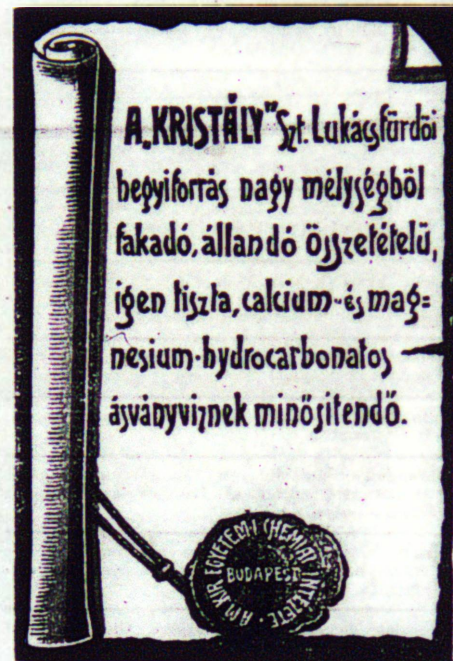 A „KRISTÁLY" Szt. Lukácsfürdöi
hegyiforrás nagy mélységböl
fakadó, állandó összetételü,
igen tiszta, calcium- és mag=
nesium-hydrocarbonatos
ásványviznek minösitendö.
A M. KIR. EGYETEMI CHEMIAI INTÉZETE
BUDAPEST